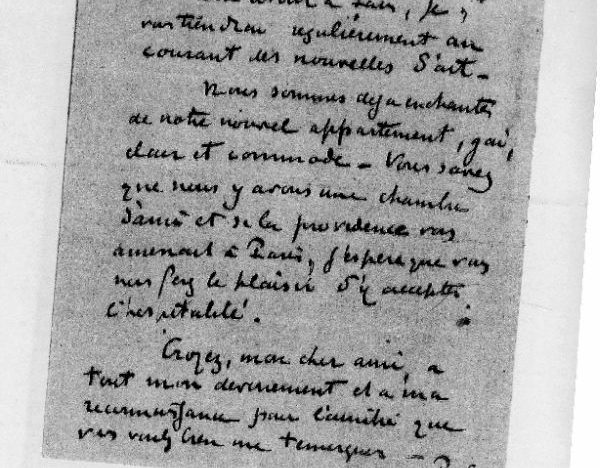 à Paris, je
vous tiendrai regulièrement au
courant des nouvelles d'art —
Nous sommes deja enchantés
de notre nouvel appartement, gai,
clair et commode — Vous savez
que nous y avons une chambre
d'ami et si la providence vous
amenait à Paris, j'espere que vous
nous ferez le plaisir d'y accepter
l'hospitalité.
Croyez, mon cher ami, a
tout mon devouement et a ma
reconnaissance pour l'amitié que
vous voulez bien me temoigner —